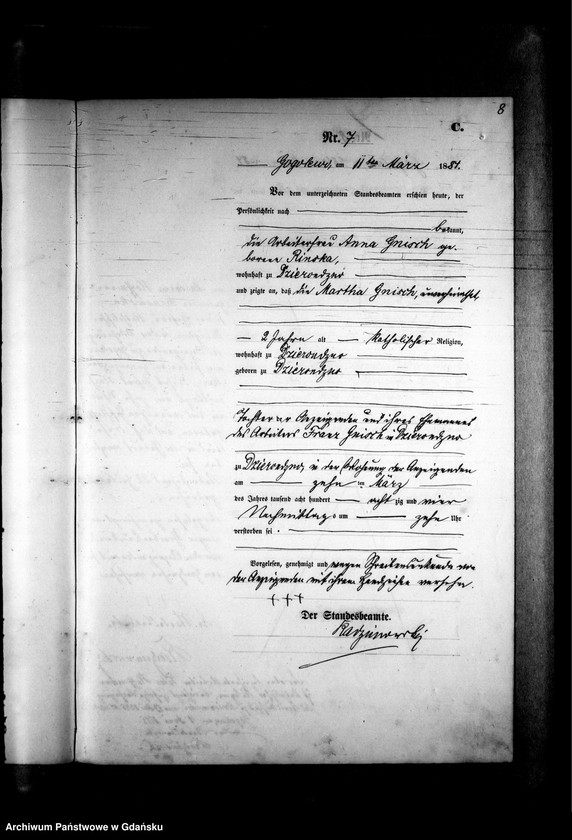 8
C.
Nr. 7
Gogolewo, am 11ten März 1881.
Vor dem unterzeichneten Standesbeamten erschien heute, der
Persönlichkeit nach
bekannt,
die Arbeiterfrau Anna Gnisch ge-
borene Rinska,
wohnhaft zu Dzierondzno
und zeigte an, daß die Martha Gnisch, unverheirathet
2 Jahren alt katholischer Religion,
wohnhaft zu Dzierondzno
geboren zu Dzierondzno
Tochter der Anzeigenden und ihres Ehemannes
des Arbeiters Franz Gnisch in Dzierondzno
zu Dzierondzno, in der Wohnung der Anzeigenden
am zehn ten März
des Jahres tausend acht hundert acht zig und
Nachmittags um zehn Uhr
verstorben sei.
Vorgelesen, genehmigt und wegen Schreibensunkunde von
der Anzeigenden mit ihrem Handzeichen versehn.
+++
Der Standesbeamte.
Archiwum Państwowe w Gdańsku